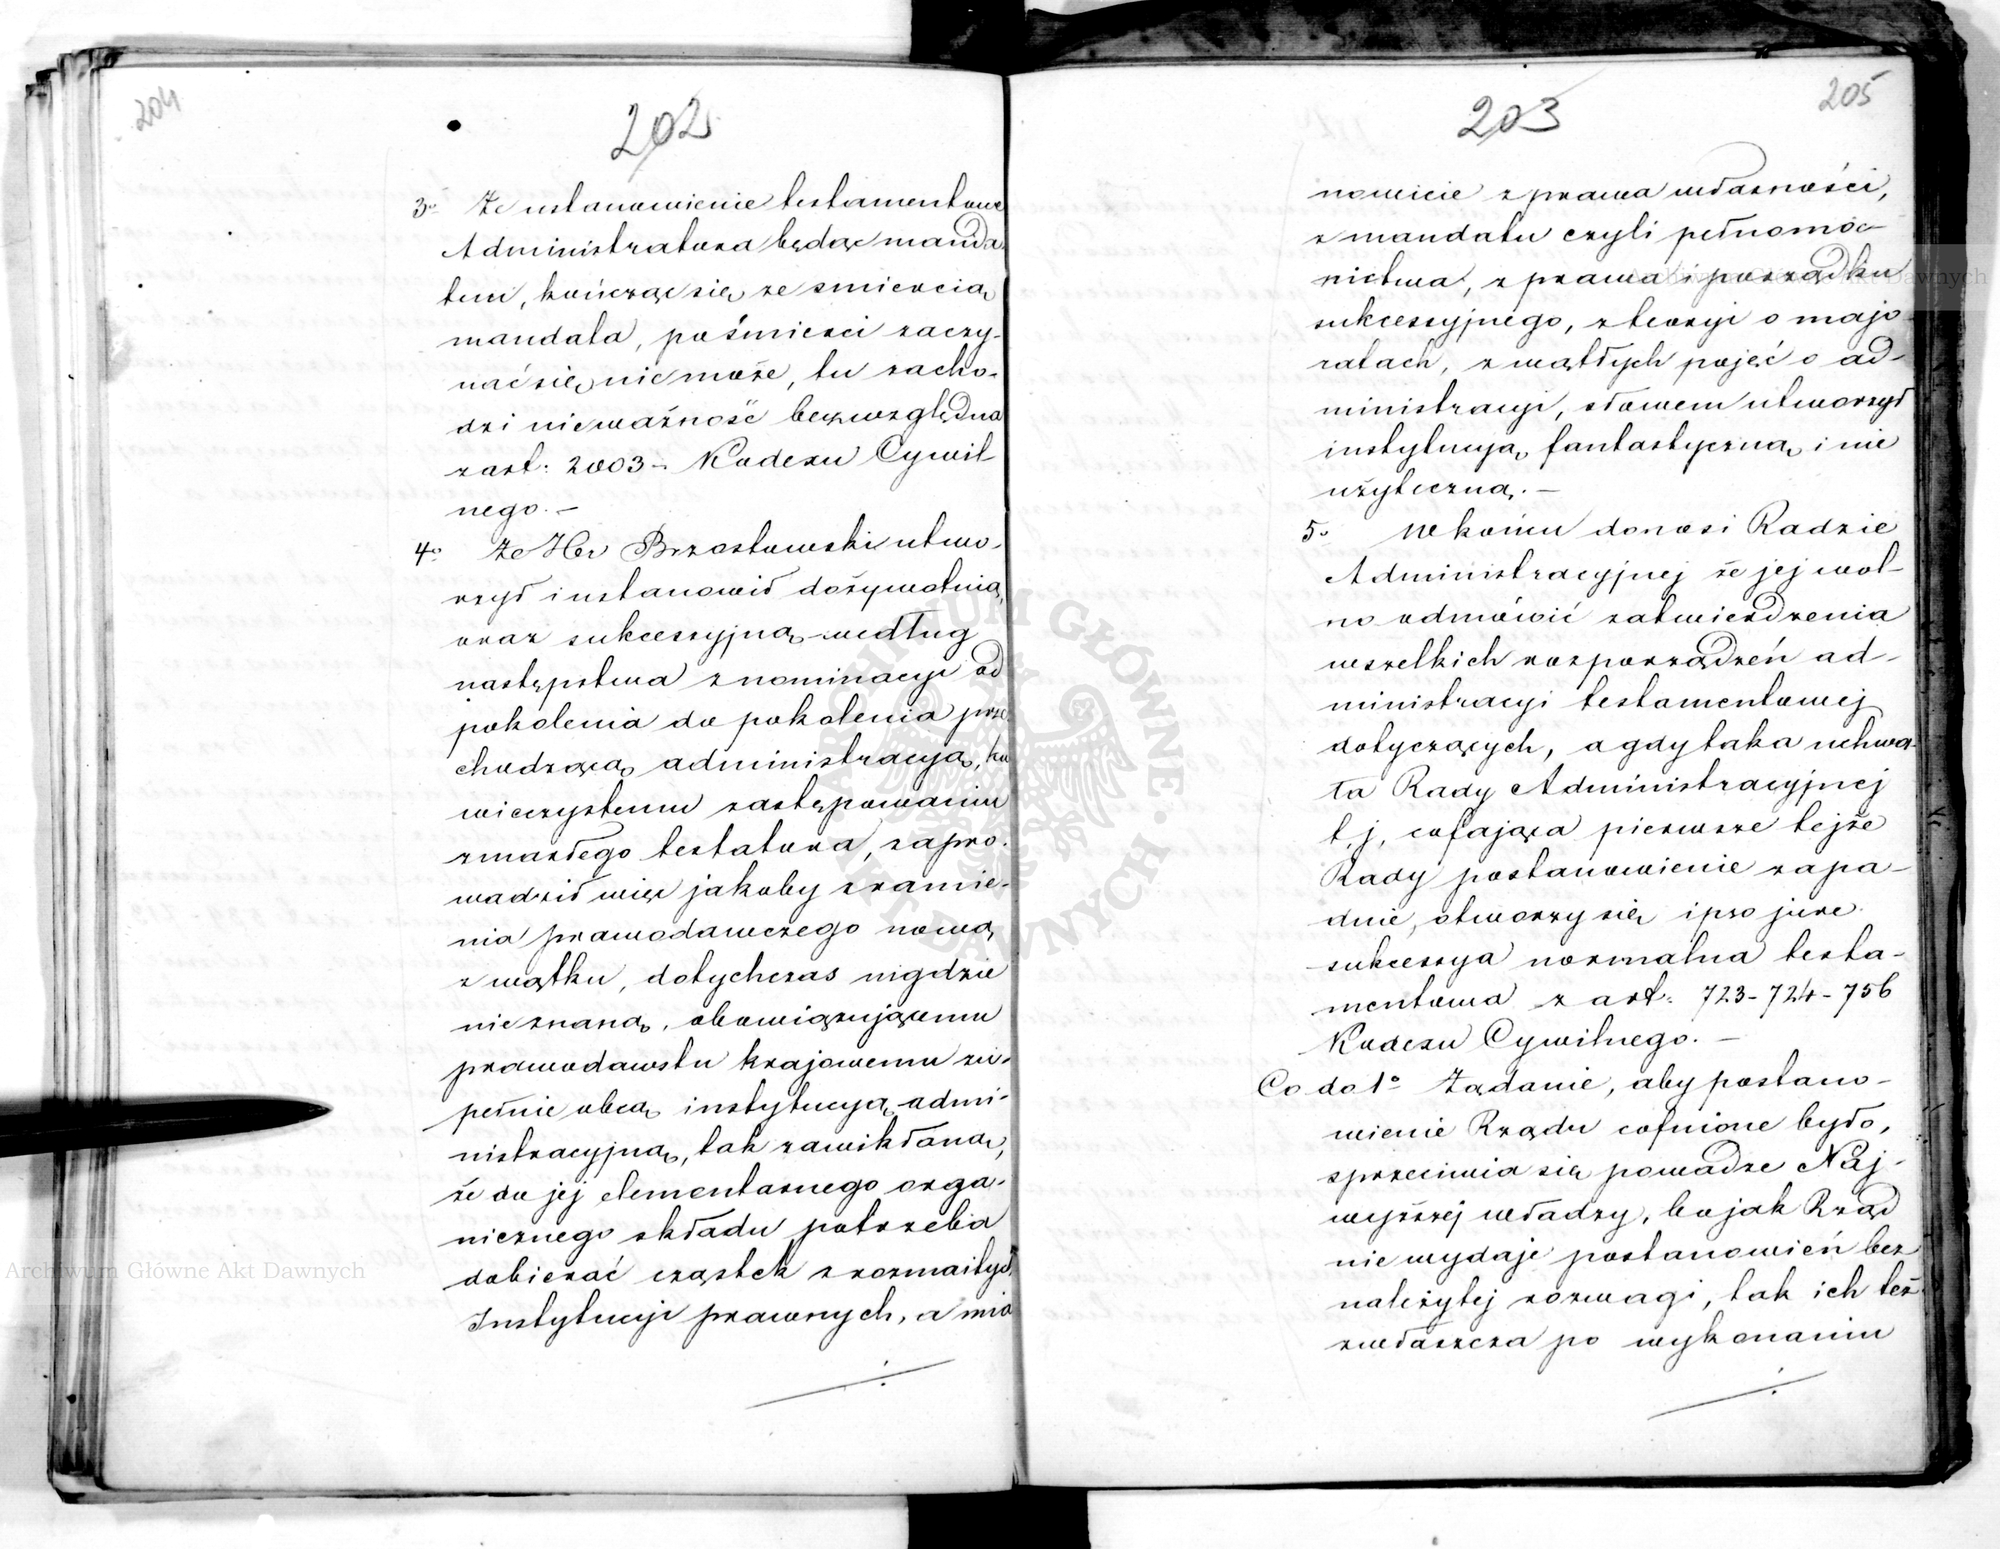 204
202
3º Że ustanowienie testamentowe
Administratora będąc manda
tem, kończąc się ze smiercią
mandata, po śmierci zaczy-
nać się nie może, tu zacho-
dzi nieważność bezwzględna
z art: 2003 - Kodexu Cywil
nego. -
4º Że Hr Brzostowski utwo-
rzył i ustanowił dożywotnią,
oraz sukcessyjną według
następstwa z nominacyi od
pokolenia do pokolenia prze
chodzącą administracyą, ku
wieczystemu zastępowaniu
zmarłego testatora, zapro-
wadził więc jakoby z ramie-
nia prawodawczego nową
z wątku, dotychczas nigdzie
nieznaną, obowiązującemu
prawodawstu krajowemu zu-
pełnie obcą instytucyą admi-
nistracyjną, tak zawikłaną,
że do jej elementarnego orga-
nicznego składu potrzeba
dobierać cząstek z rozmaitych
Instytucyi prawnych, a mia
205
203
nowicie z prawa własności,
z mandatu czyli pełnomoc-
nictwa, z prawa i porządku
sukcessyjnego, z teoryi o majo
ratach, z wątłych pojęć o ad-
ministracyi, słowem utworzył
instytucyą fantastyczną i nie
użyteczną. -
5º W końcu donosi Radzie
Administracyjnej że jej wol-
no odmówić zatwierdzenia
wszelkich rozporządzeń ad-
ministracyi testamentowej
dotyczących, a gdy taka uchwa-
ła Rady Administracyjnej
t, j, cofająca pierwsze tejże
Rady postanowienie zapa-
dnie, otworzy się ipso jure
sukcessya normalna testa-
mentowa z art: 723-724-756
Kodexu Cywilnego. -
Co do 1º Żądanie, aby postano-
wienie Rządu cofnione było,
sprzeciwia się powadze Naj-
wyższej władzy, bo jak Rząd
nie wydaje postanowień bez
należytej rozwagi, tak ich też
zwłaszcza po wykonaniu
Archiwum Główne Akt Dawnych
Archiwum Główne Akt Dawnych
ARCHIWUM GŁÓWNE AKT DAWNYCH